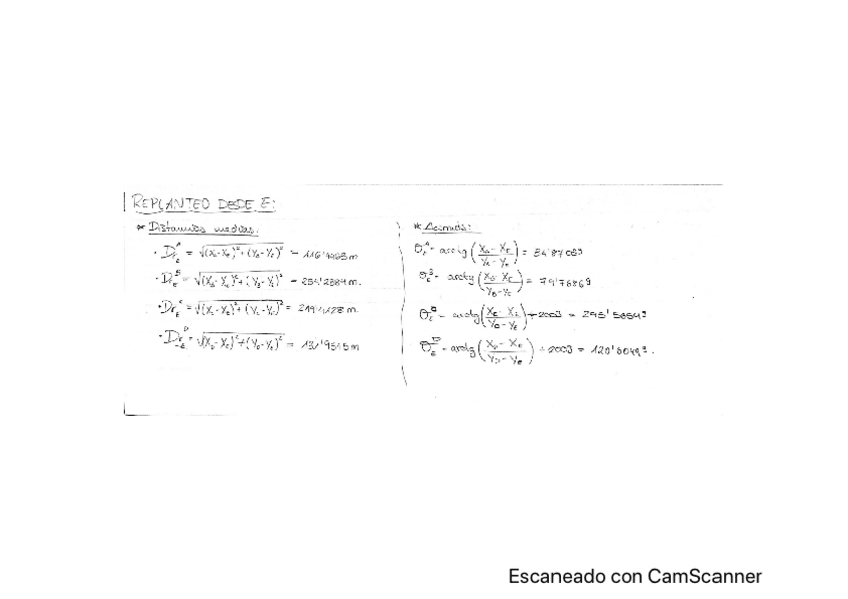 REPLANTEO DESDE E:
* Distancias medias.
· D_E^A = √(X_A-X_E)²+(Y_A-Y_E)² = 116'4993 m
· D_E^B = √(X_B-X_E)²+(Y_B-Y_E)² = 254'2384 m.
· D_E^C = √(X_C-X_E)²+(Y_C-Y_E)² = m.
· D_E^D = √(X_D-X_E)²+(Y_D-Y_E)² = 131'9515 m
* Acimuts:
θ_E^A = arctg (X_A - X_E / Y_A - Y_E) = 34'8703g
θ_E^B = arctg (X_B - X_E / Y_B - Y_E) = 79'7686g
arctg (X_C - X_E / Y_C - Y_E) + 200g = 295'5859g
θ_E^D = arctg (X_D - X_E / Y_D - Y_E) + 200g = 120'8049g.
Escaneado con CamScanner